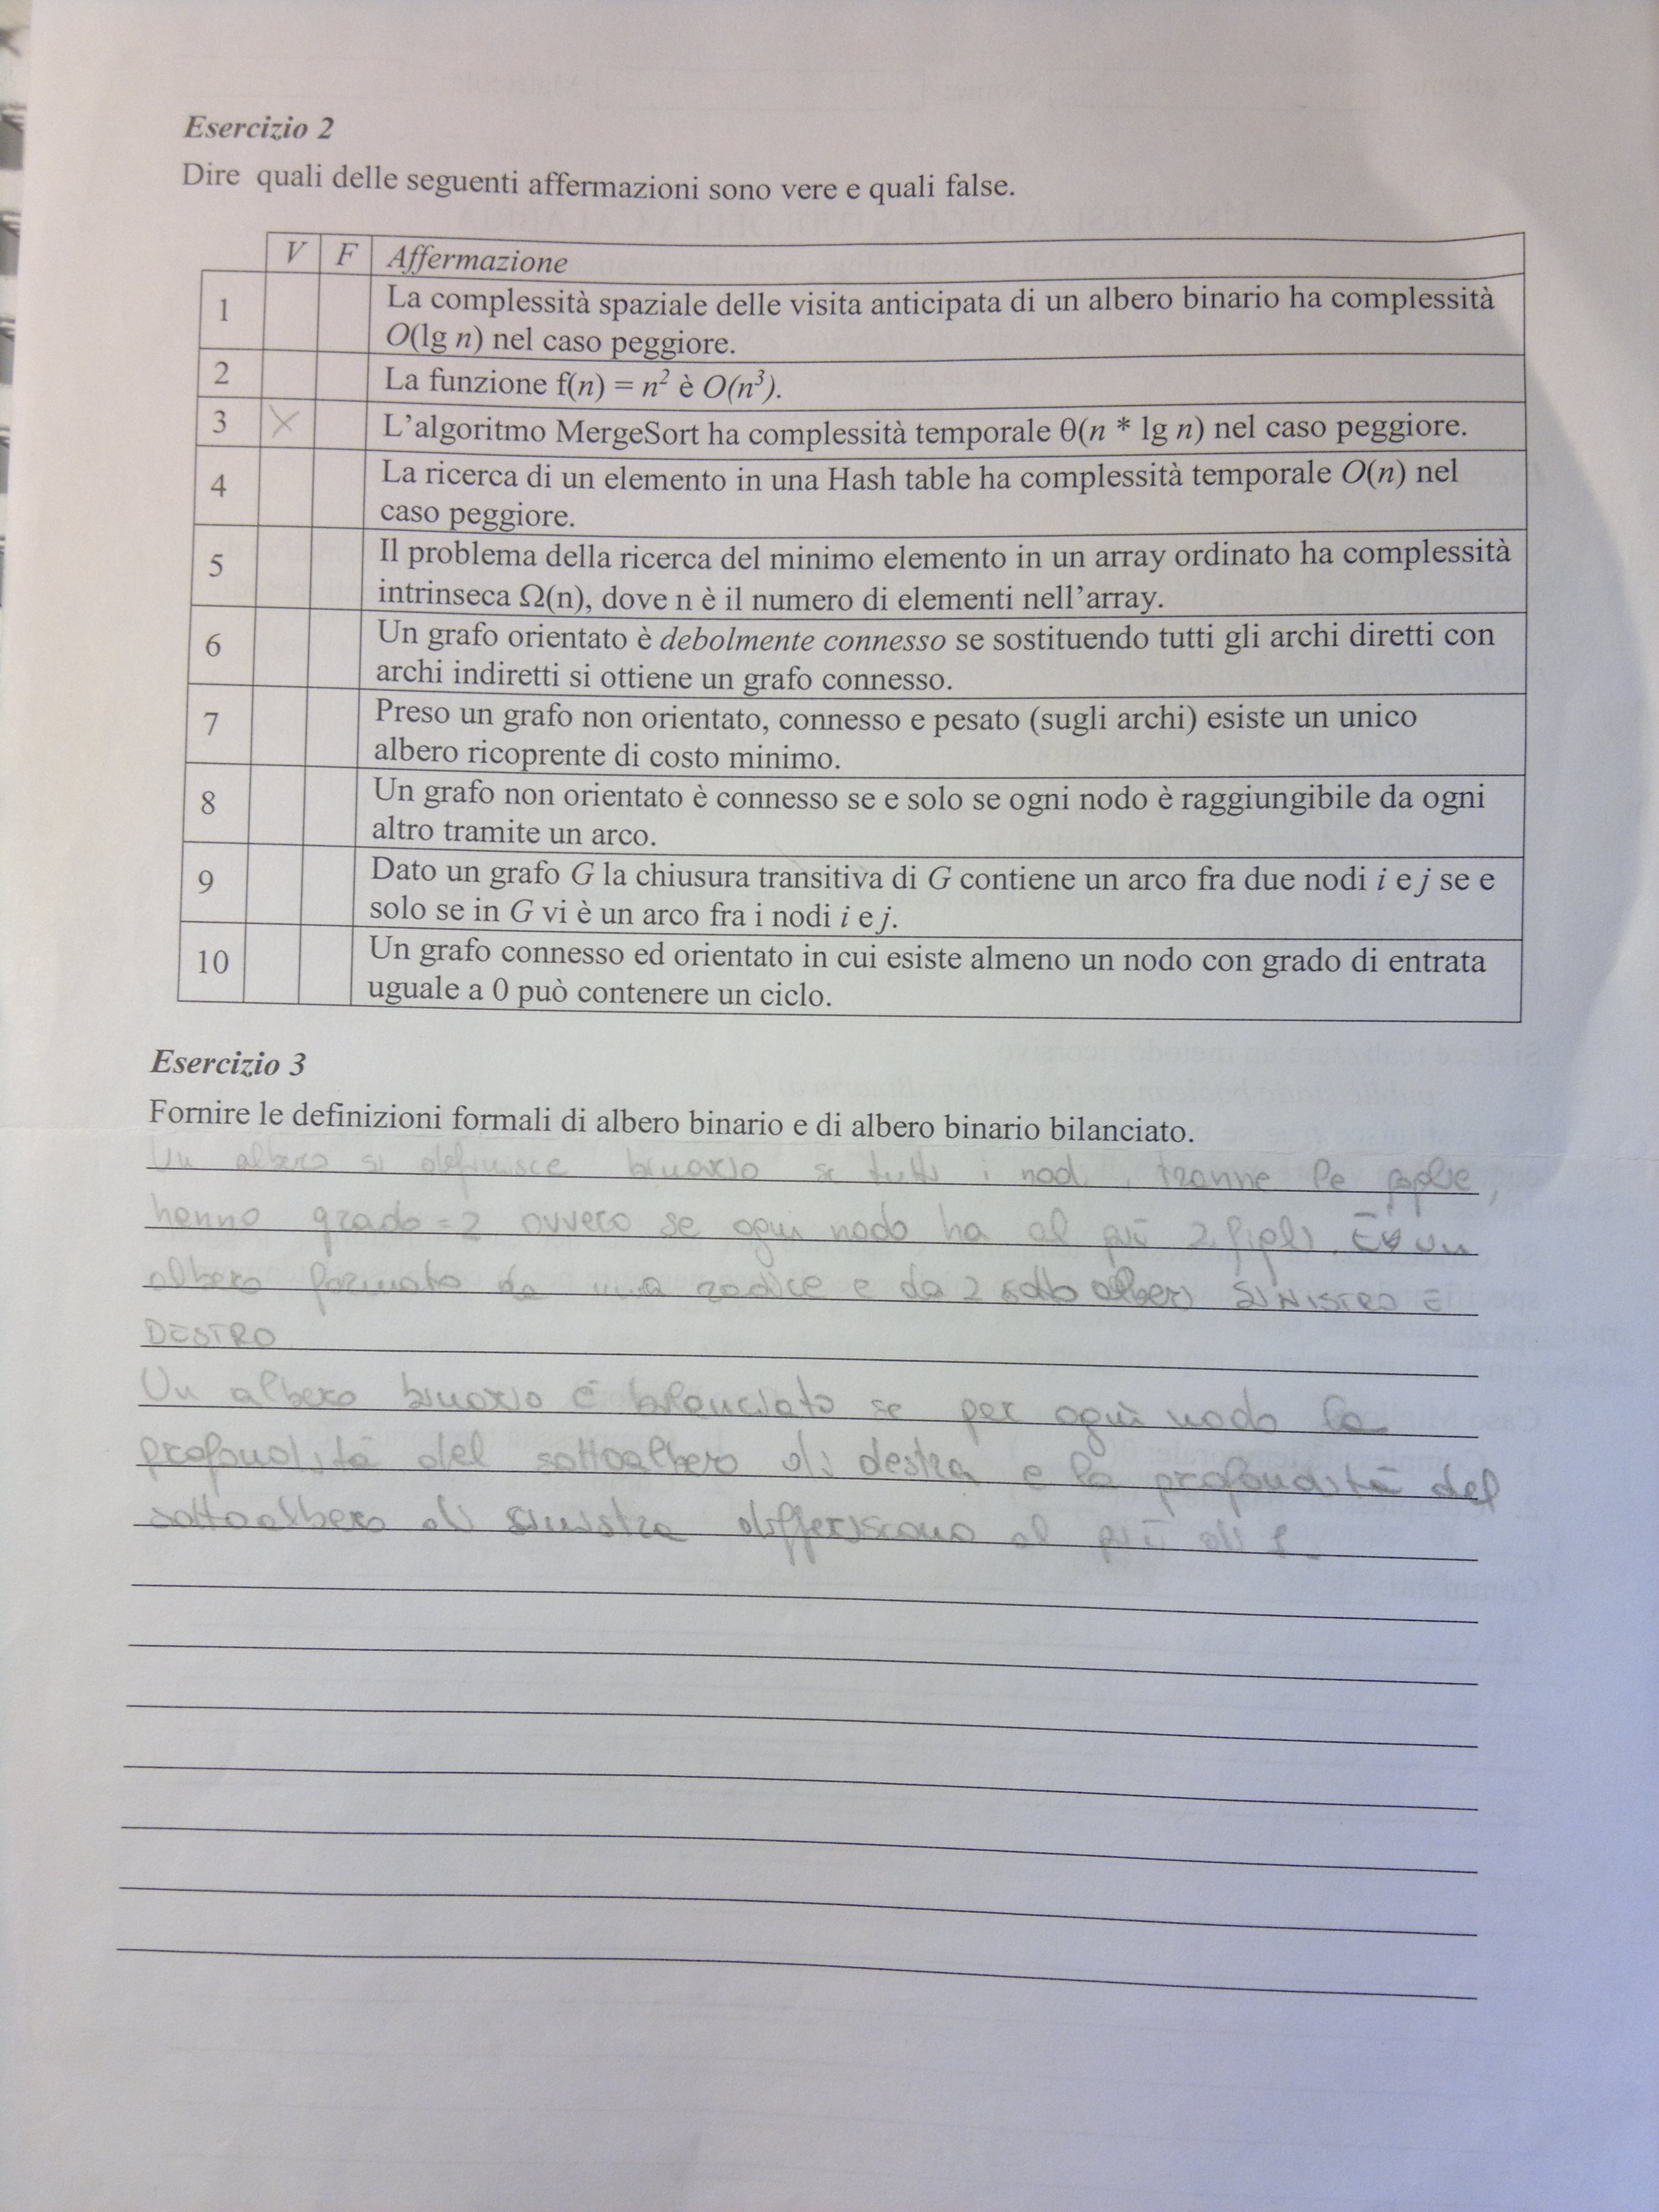 Esercizio 2
Dire quali delle seguenti affermazioni sono vere e quali false.
V F Affermazione
1 La complessità spaziale delle visita anticipata di un albero binario ha complessità
O(lg n) nel caso peggiore.
2 La funzione f(n) = n² è O(n³).
3 X L'algoritmo MergeSort ha complessità temporale θ(n * lg n) nel caso peggiore.
4 La ricerca di un elemento in una Hash table ha complessità temporale O(n) nel
caso peggiore.
5 Il problema della ricerca del minimo elemento in un array ordinato ha complessità
intrinseca Ω(n), dove n è il numero di elementi nell'array.
6 Un grafo orientato è debolmente connesso se sostituendo tutti gli archi diretti con
archi indiretti si ottiene un grafo connesso.
7 Preso un grafo non orientato, connesso e pesato (sugli archi) esiste un unico
albero ricoprente di costo minimo.
8 Un grafo non orientato è connesso se e solo se ogni nodo è raggiungibile da ogni
altro tramite un arco.
9 Dato un grafo G la chiusura transitiva di G contiene un arco fra due nodi i e j se e
solo se in G vi è un arco fra i nodi i e j.
10 Un grafo connesso ed orientato in cui esiste almeno un nodo con grado di entrata
uguale a 0 può contenere un ciclo.
Esercizio 3
Fornire le definizioni formali di albero binario e di albero binario bilanciato.
Un albero si definisce binario se tutti i nodi, tranne le foglie,
hanno grado = 2 ovvero se ogni nodo ha al più 2 figli. È un
albero formato da una radice e da 2 sotto alberi SINISTRO E
DESTRO
Un albero binario è bilanciato se per ogni nodo la
profondità del sottoalbero di destra e la profondità del
sottoalbero di sinistra differiscono al più di 1.